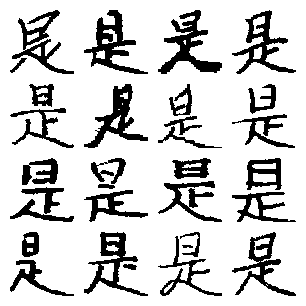 是是是是
是是是是
是是是是
是是是是